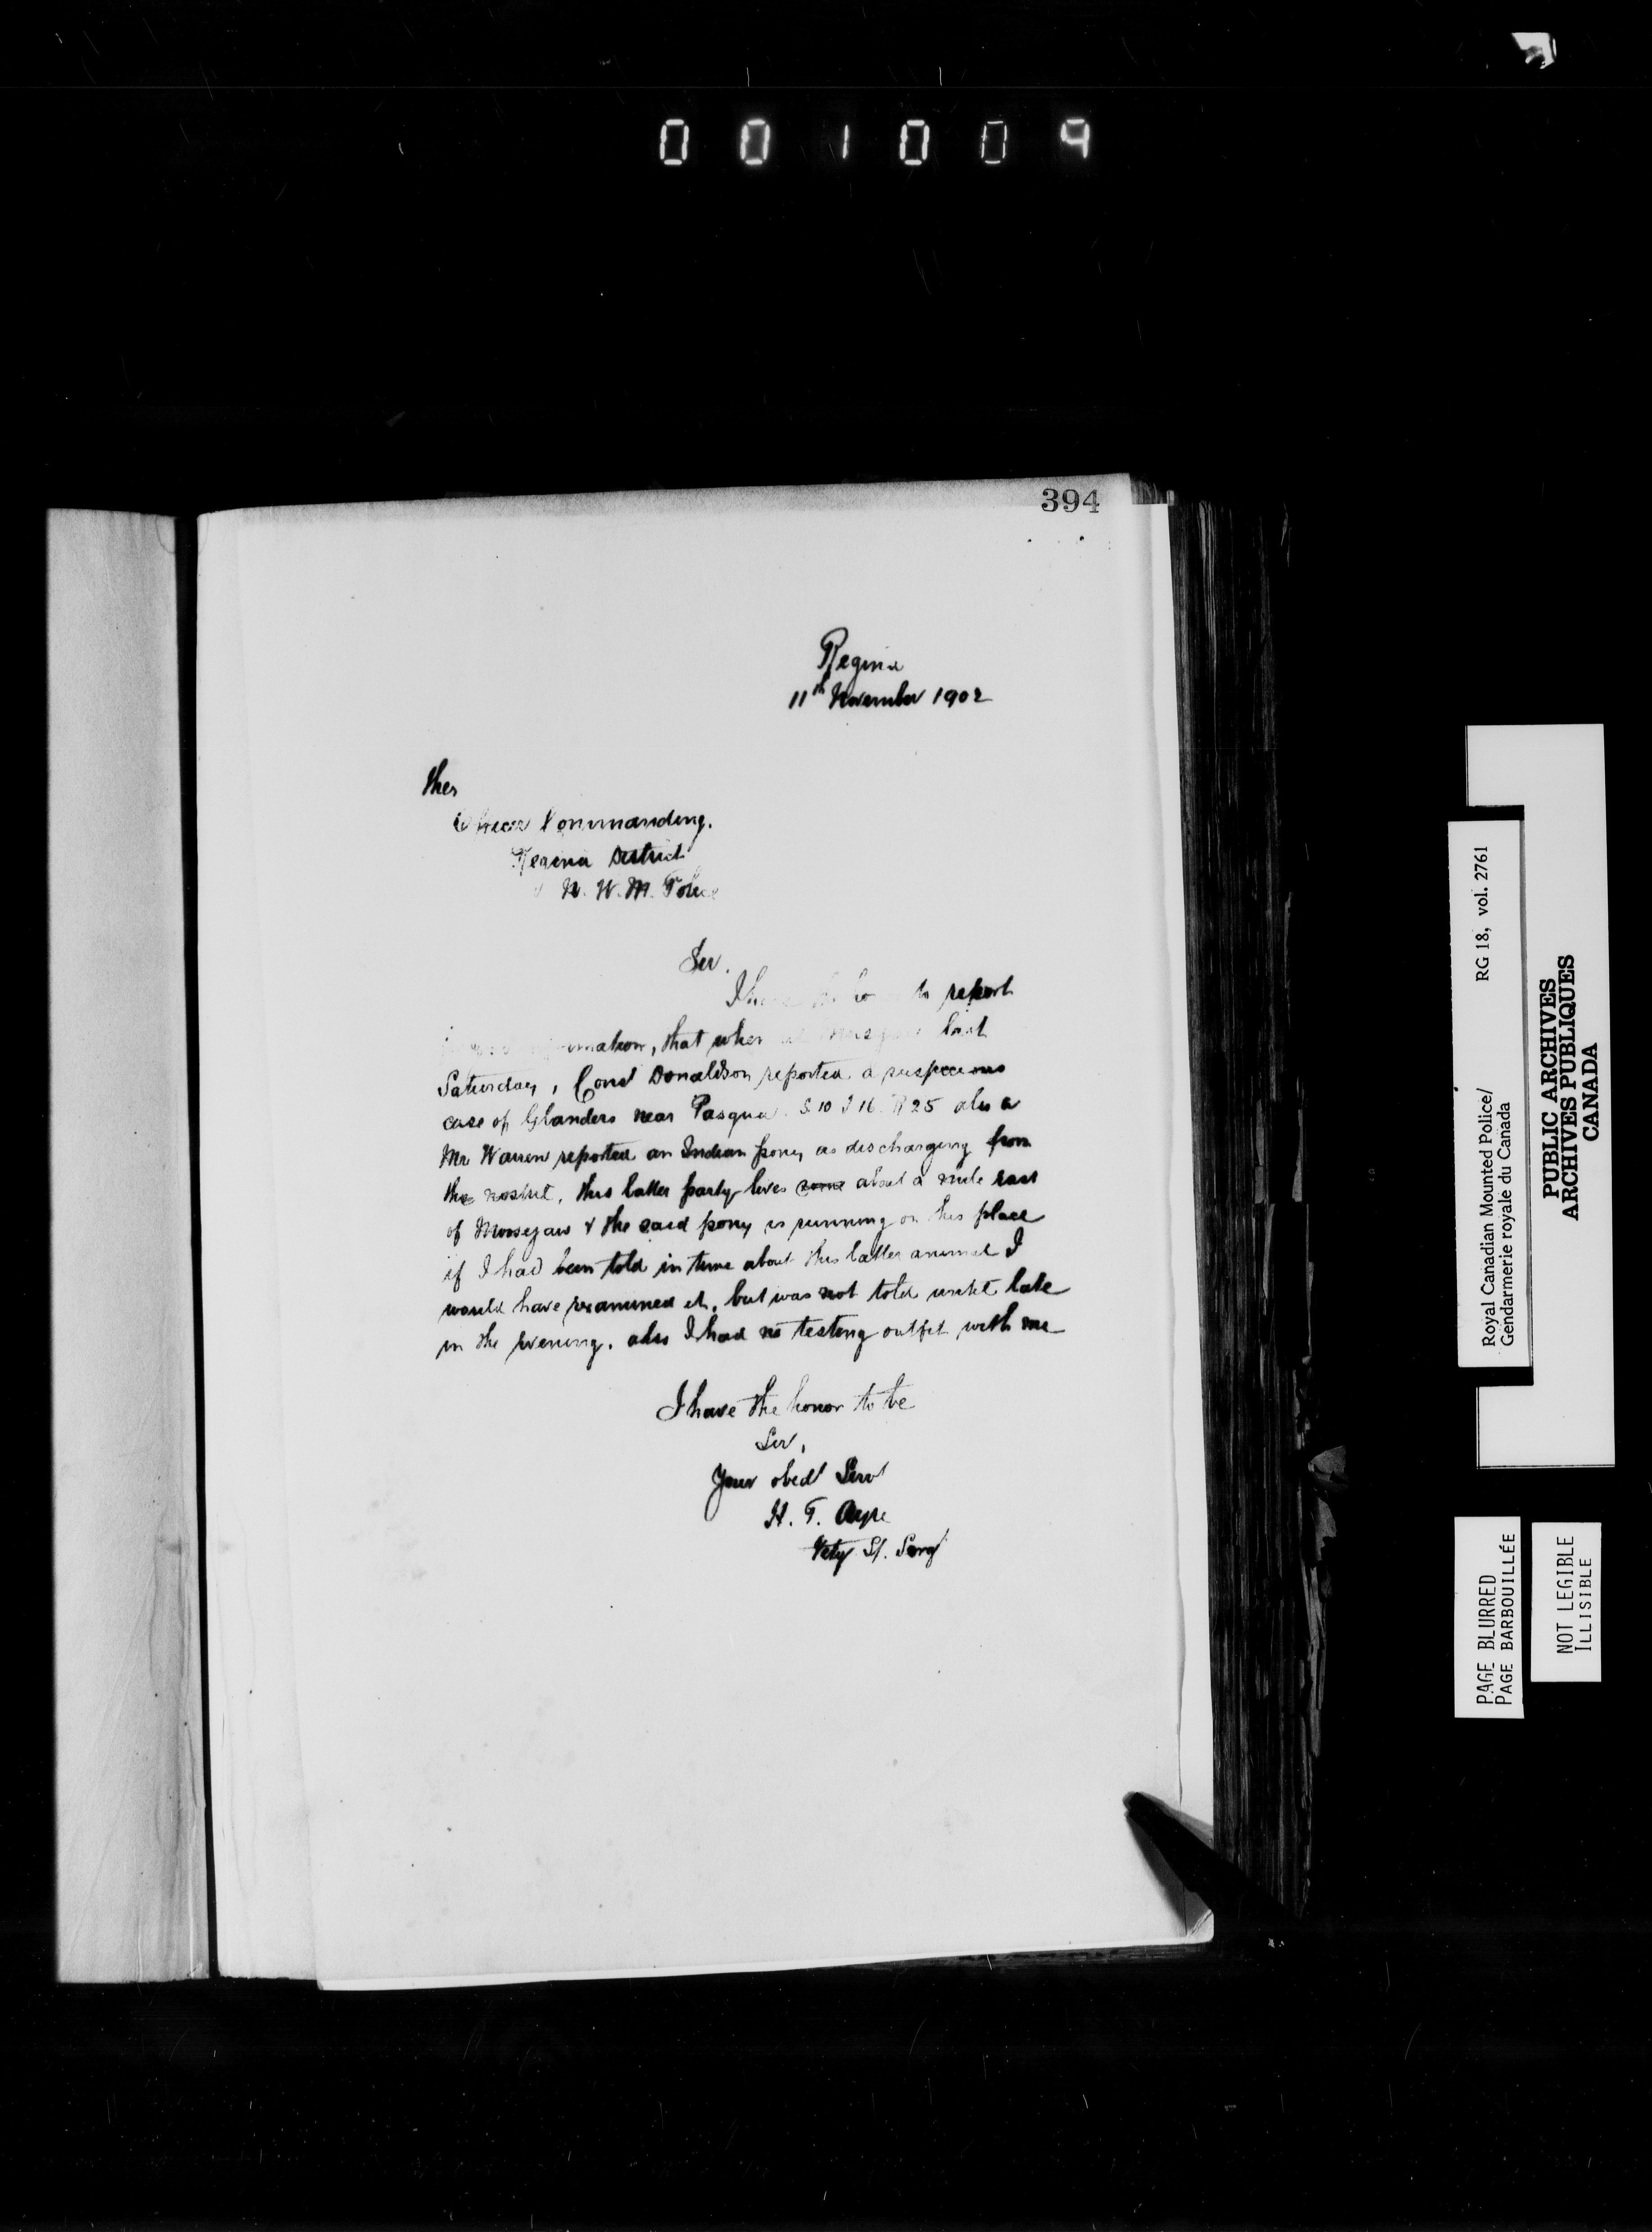 001009
394
Regina
11th November 1902
The
Officer Commanding.
Regina District
N. W. M. Police
Sir,
I have to report
information, that when Moosejaw last
Saturday, Const Donaldson reported a suspicious
case of Glanders near Pasqua. S. 10 T 16 R 25 also a
Mr Warren reported an Indian pony as discharging from
the nostril, this latter party lives some about a mile east
of Moosejaw & the said pony is running on his place
if I had been told in time about this latter animal I
would have examined it, but was not told until late
in the evening. also I had no testing outfit with me
I have the honor to be
Sir,
Your obedt Servt
H. T. Ayre
Vety St. Sergt
Royal Canadian Mounted Police/ RG 18, vol. 2761
Gendarmerie royale du Canada
PUBLIC ARCHIVES
ARCHIVES PUBLIQUES
CANADA
PAGE BLURRED
PAGE BARBOUILLÉE
NOT LEGIBLE
ILLISIBLE